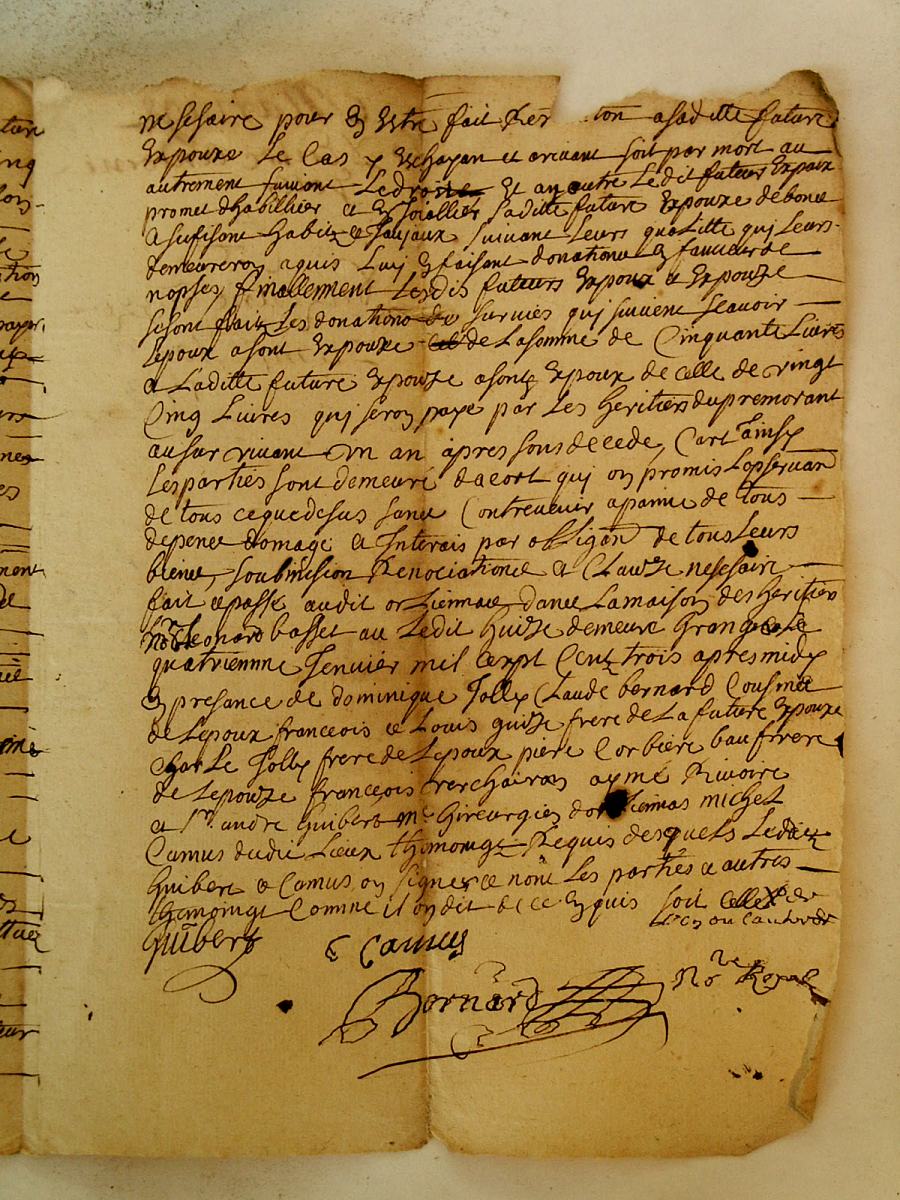 nesesaire pour En Estre fait Res ton asaditte future
Expouze Le Cas y Eschayan et arivant soit par mort au
autrement suivant Ledroite Et an outre Ledit futeur Expoux
promet dhabillier et Enjoiallier saditte future Expouze debone
a sufisant habitz et Joujaux suivant Leurs qualitte quj Leurs
demeureron aquis Luij En faisant donations En faveur de
nopses finallement Lesdis futeurs Expoux et Expouze
sesont fait Les donations de survies quj suivent scavoir
Lepoux asont Expouze de Lasomme de Cinquante Livres
et Laditte future Expouze asont Expoux de celle de vingt
Cinq Livres quj seron paye par Les heritiers dupremorant
au sur vivant Un an apres sons decede, Cart Ainsy
Lesparties sont demeuré dacort qui on promis Lopservan
de tous cequedesus sanct Contrevenir apanne de tous
depence domage et Interais par obligan de tous Leurs
biene, soubmision Renociatione et Clauze nesesaire
fait et passé audit orliennac dance Lamaison des heritier
Leonard basset au Ledit Guize demeure Grangé Le
quatriemme Jenvier mil Cept Centz trois apres midy
En presance de dominique Jolly Claude bernard Cousin
de Lepoux francois et Louis guize frere de La future Expouze
Charle Jolly frere de Lepoux piere Corbiere baufrere
de Lepouze françois aymé Rivoire
et Sr. andre Guibert me Gireurgien dorliennas michel
Camus dudit Lieux thimoingt Requis desquels Ledit
Guibert et Camus on signer et non Les parties et autres
thimoingt Comme il on dit de ce Enquis soit celle
Guibert C Camus
Bernard No re Royal